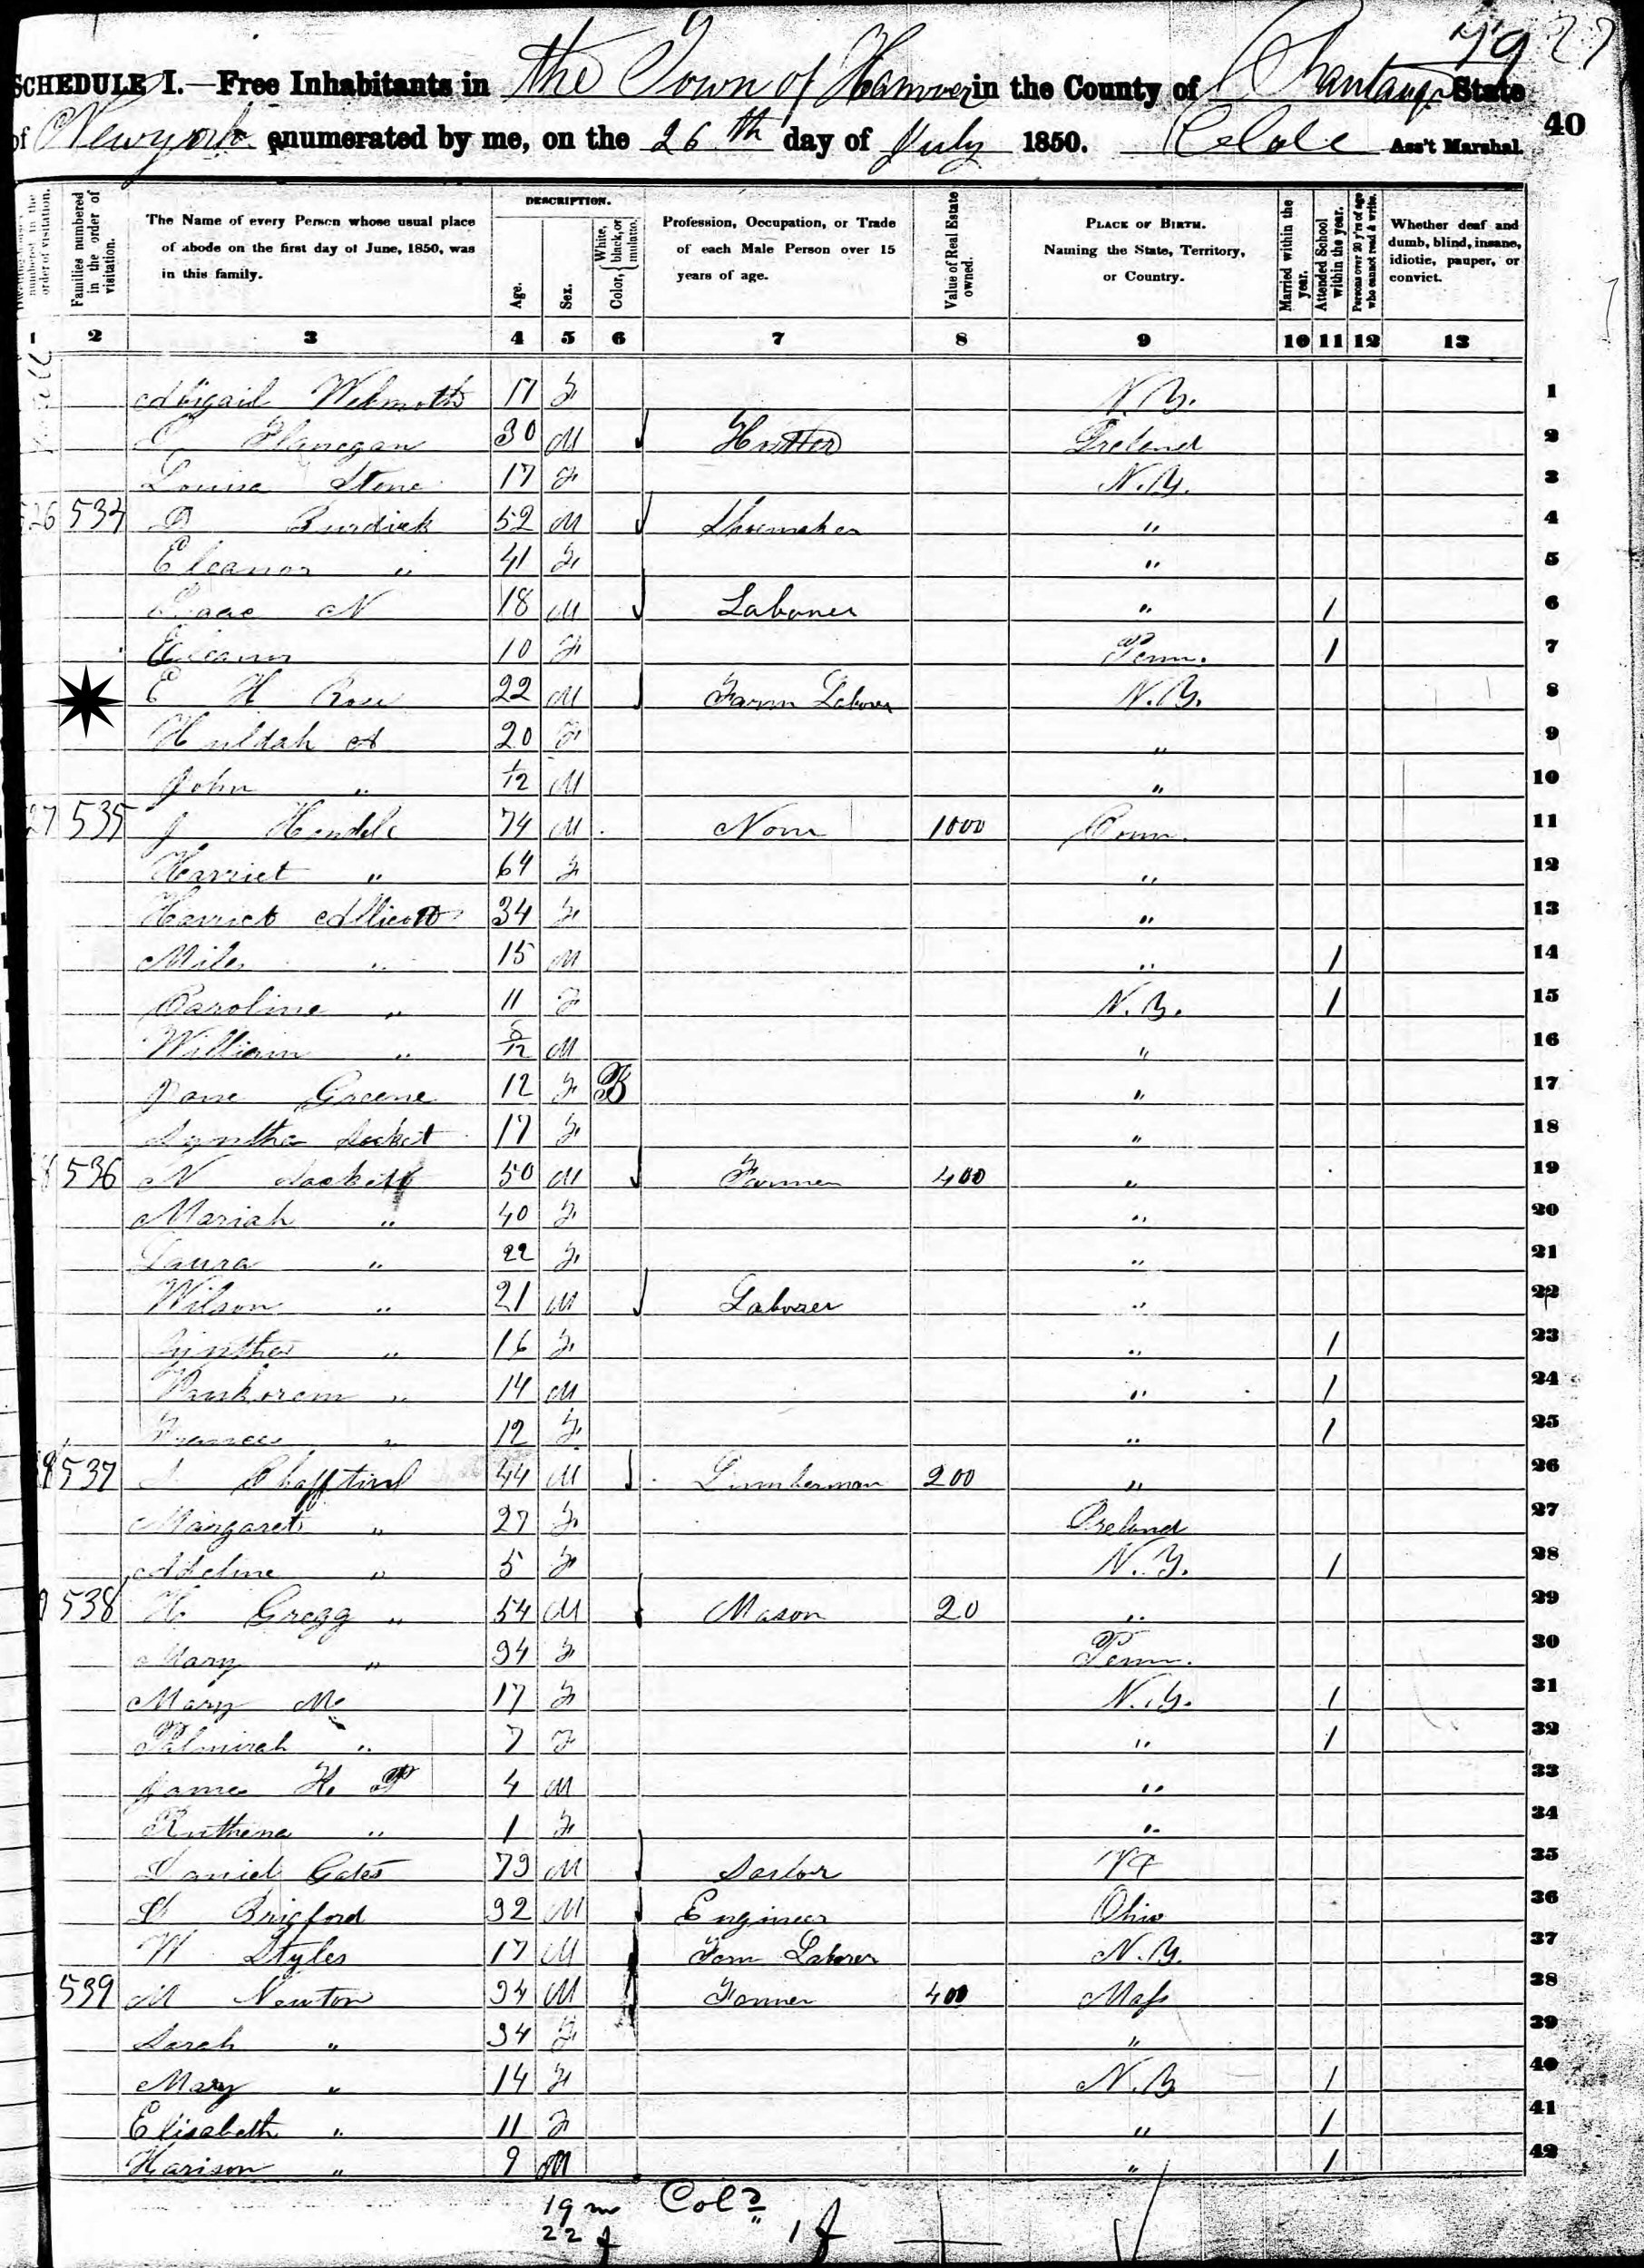 79 27
SCHEDULE I.—Free Inhabitants in the Town of Hanover in the County of Chautauqu State
of Newyork enumerated by me, on the 26th day of July 1850. Ass't Marshal.
40
numbered in the order of visitation.
Families numbered in the order of visitation.
The Name of every Person whose usual place of abode on the first day of June, 1850, was in this family.
DESCRIPTION.
Age.
Sex.
Color, White, black, or mulatto.
Profession, Occupation, or Trade of each Male Person over 15 years of age.
Value of Real Estate owned.
PLACE OF BIRTH. Naming the State, Territory, or Country.
Married within the year.
Attended School within the year.
Persons over 20 y'rs of age who cannot read & write.
Whether deaf and dumb, blind, insane, idiotic, pauper, or convict.
1 2 3 4 5 6 7 8 9 10 11 12 13
Abigail 17 F N.Y. 1
Flanegan 30 M Ireland 2
Louisa Stone 17 F N.Y. 3
26 534 Burdick 52 M Shoemaker " 4
Eleanor " 41 F " 5
Isaac N 18 M Laborer " / 6
10 F Penn. / 7
E H Rose 22 M Farm Laborer N.Y. 8
Huldah A 20 F " 9
John " 1/12 M " 10
27 535 J 74 M None 1000 Conn. 11
Harriet " 64 F " 12
Harriet 34 F " 13
Miles " 15 M " / 14
Caroline " 11 F N.Y. / 15
William " /12 M " 16
Jane Greene 12 F B " 17
Syntha Sacket 17 F " 18
8 536 N Sackett 50 M Farmer 400 " 19
Mariah " 40 F " 20
Laura " 22 F " 21
Wilson " 21 M Laborer " 22
" 16 F " / 23
" 14 M " / 24
Frances " 12 F " / 25
537 44 M Lumberman 200 " 26
Margaret " 27 F Ireland 27
Adeline " 5 F N.Y. / 28
538 H Gregg " 54 M Mason 20 " 29
Mary " 34 F Penn. 30
Mary M. 17 F N.Y. / 31
Palmirah " 7 F " / 32
James H. P 4 M " 33
Ruthena " 1 F " 34
Daniel Gates 79 M Sailor Vt 35
32 M Engineer Ohio 36
W Styles 17 M Farm Laborer N.Y. 37
539 M Newton 34 M Farmer 400 Mass 38
Sarah " 34 F " 39
Mary " 14 F N.Y. / 40
Elisabeth " 11 F " / 41
Harison " 9 M " / 42
19 m Col?
22 f 1 f